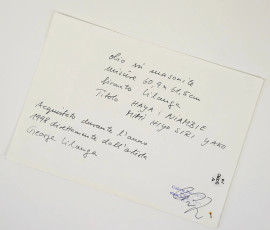 olio su masonite
misure 60,9 x 61,5cm
firmato Lilanga
Titolo HAYA! NIAMBIE
MIMI HIYO SIRI YAKO
Acquistato durante l'anno
1998 direttamente dall'artista
George Lilanga